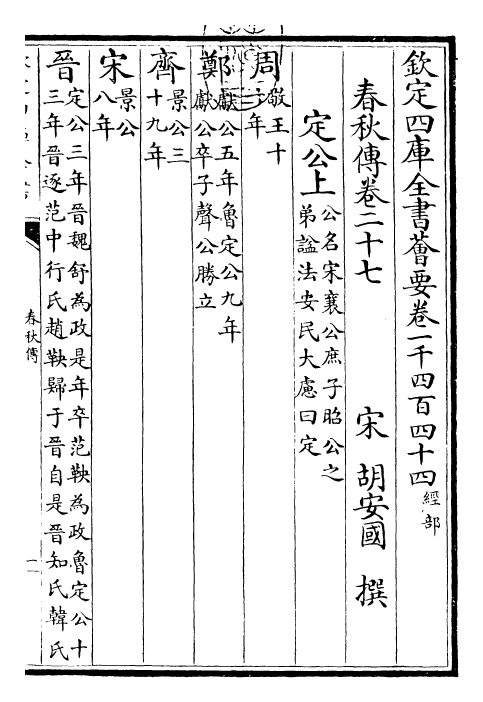 欽定四庫全書薈要卷一千四百四十四 經部
春秋傳卷二十七 宋 胡安國 撰
定公上 公名宋襄公庶子昭公之
弟諡法安民大慮曰定
周 敬王十
年
鄭 獻公五年魯定公九年
獻公卒子聲公勝立
齊 景公三
十九年
宋 景公
八年
晉 定公三年晉魏舒為政是年卒范鞅為政魯定公十
三年晉逐范中行氏趙鞅歸于晉自是晉知氏韓氏
春秋傳
一